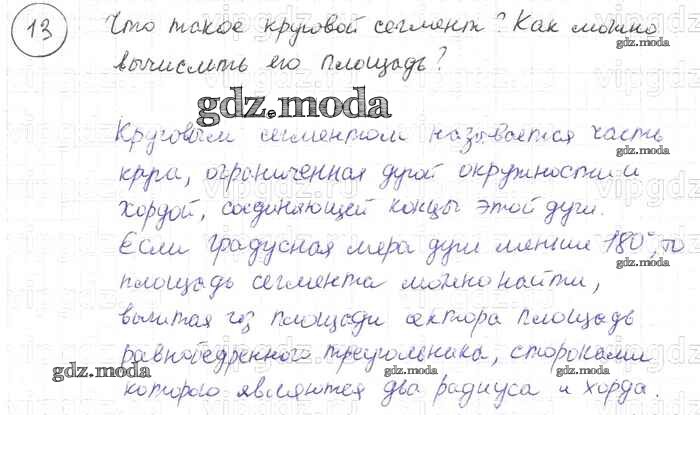 13 Что такое круговой сегмент? Как можно
gdz.moda
вычислить его площадь?
gdz.moda
Круговым сегментом называется часть
gdz.moda
круга, ограниченная дугой окружности и
хордой, соединяющей концы этой дуги.
Если градусная мера дуги меньше 180°, то
gdz.moda
площадь сегмента можно найти,
вычитая из площади сектора площадь
равнобедренного треугольника, сторонами
gdz.moda
gdz.moda
которого являются два радиуса и хорда.
gdz.moda